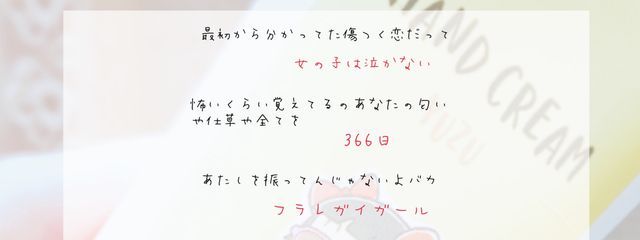 最初から分かってた傷つく恋だって
女の子は泣かない
怖いくらい覚えてるのあなたの匂い
や仕草や全てを
366日
あたしを振ってんじゃないよバカ
フラレガイガール
HAND CREAM
YUZU